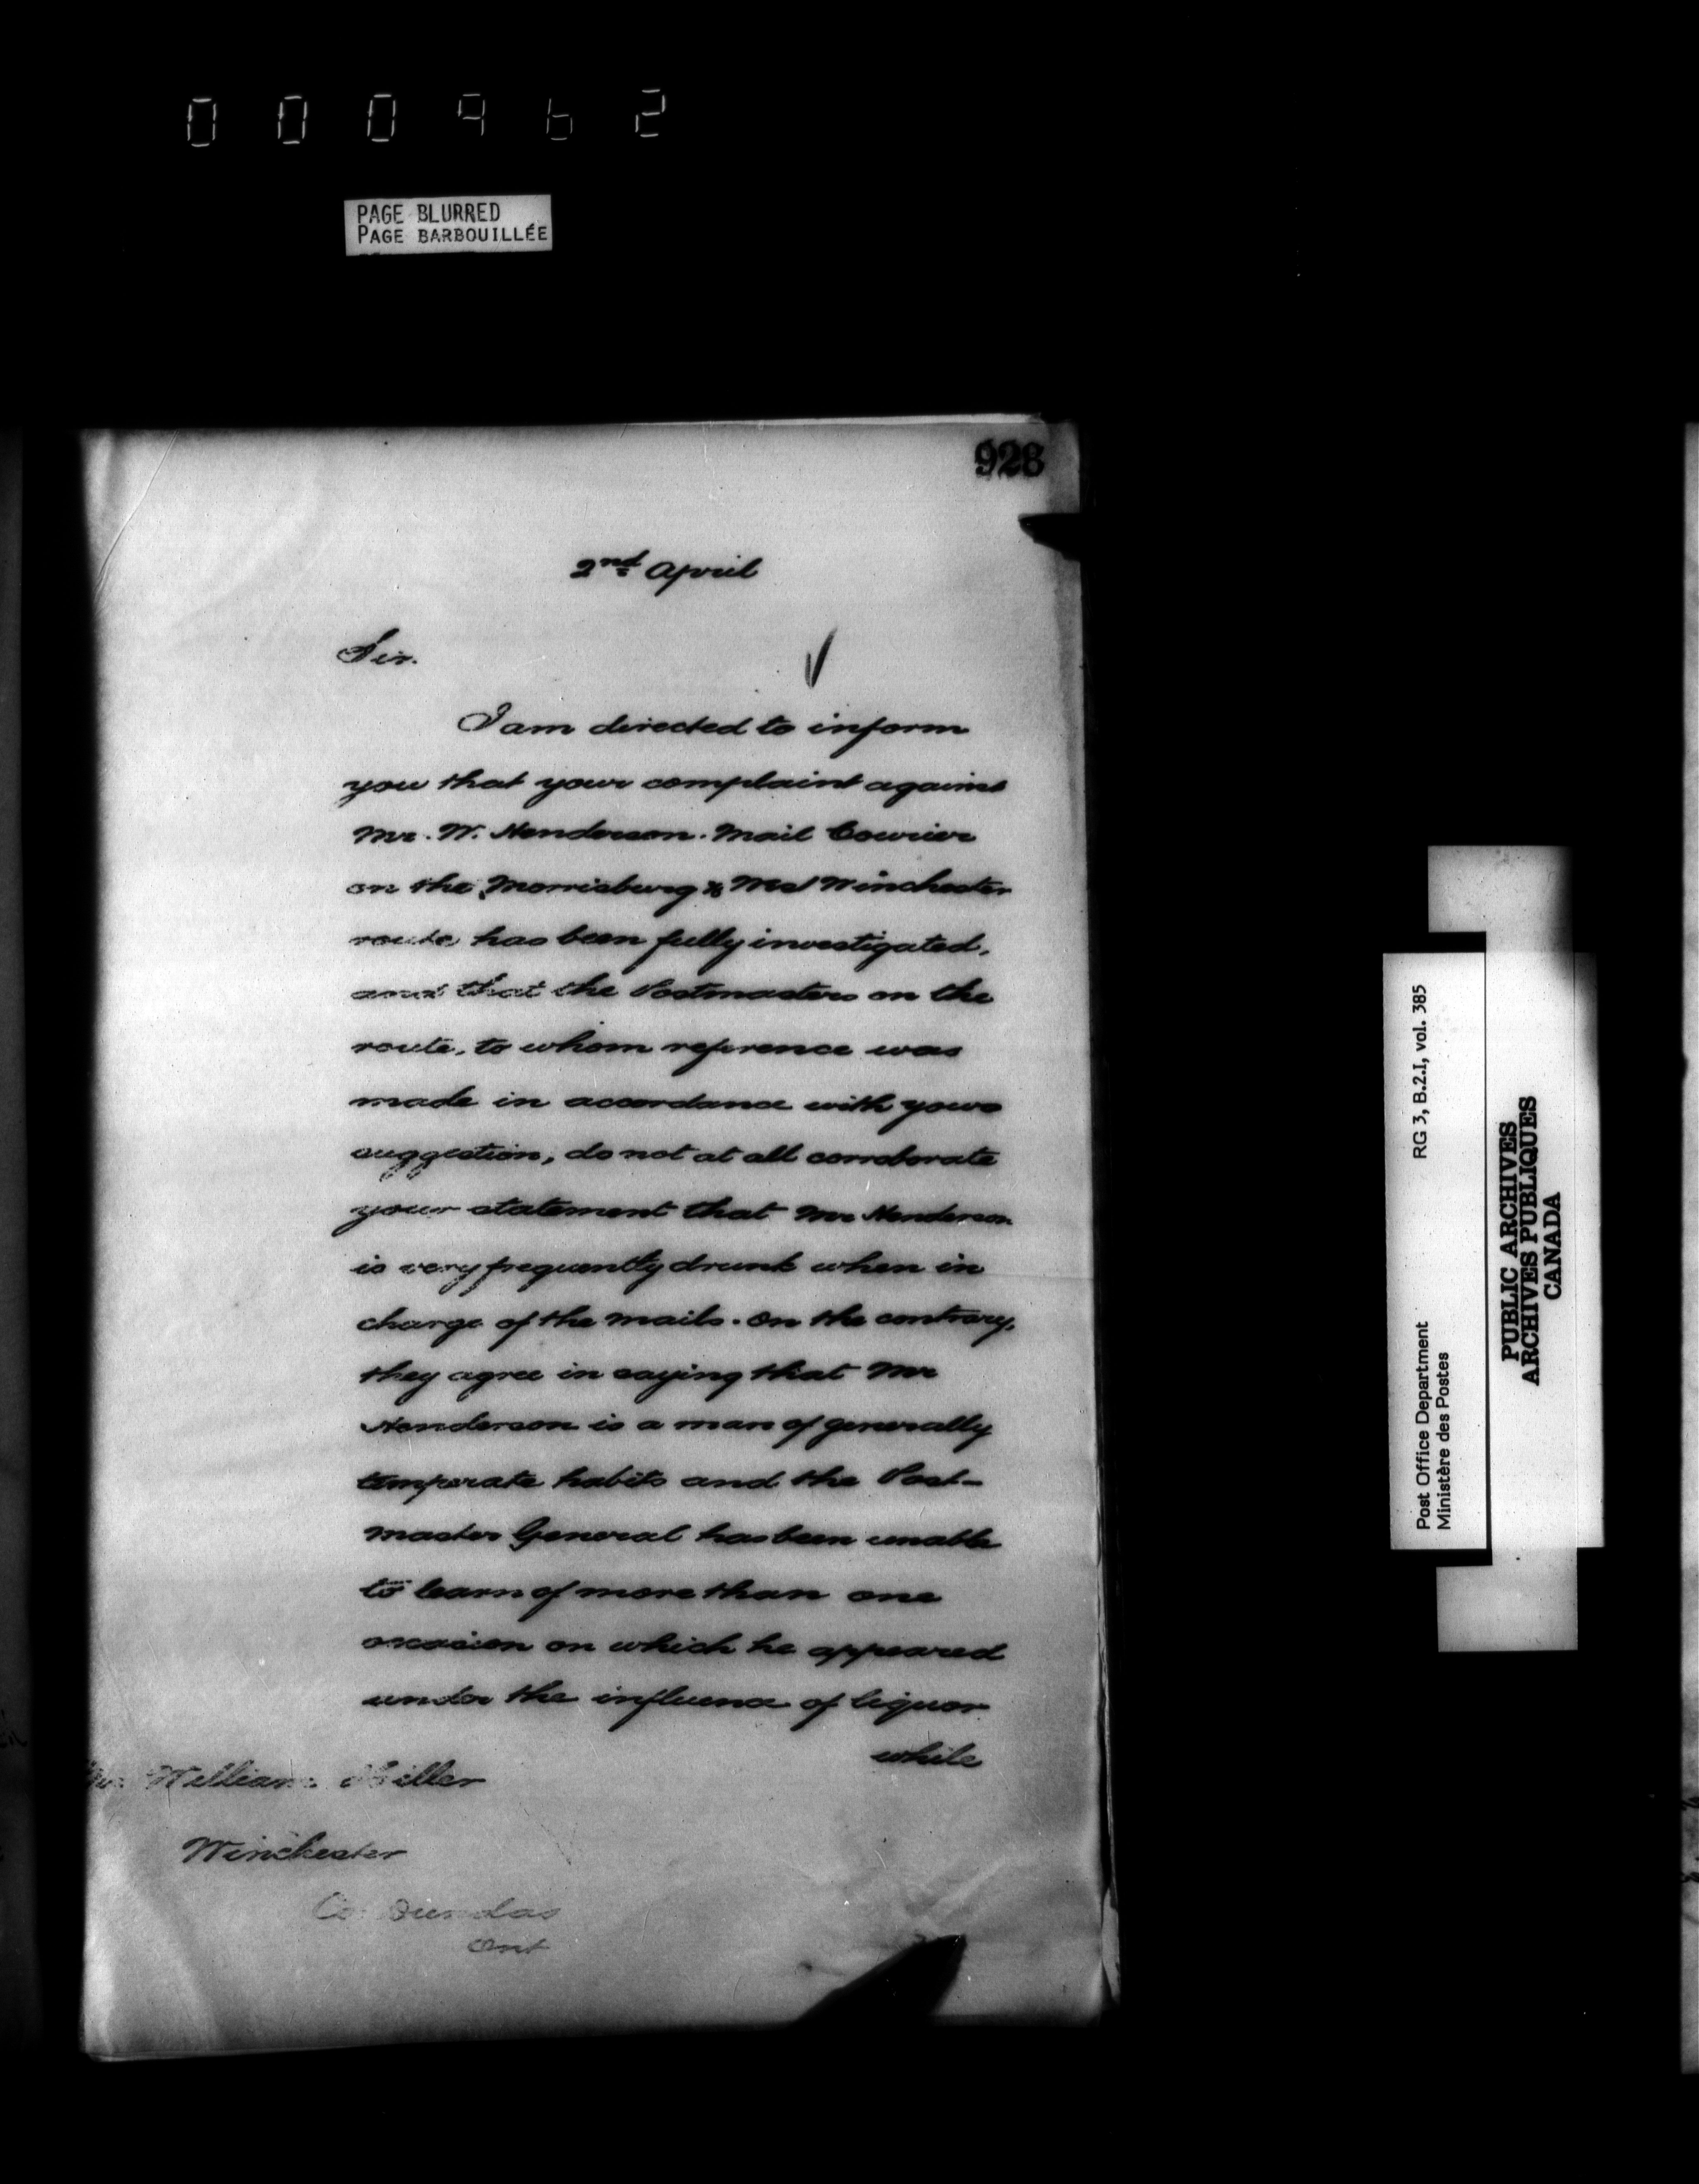 000962
PAGE BLURRED
PAGE BARBOUILLÉE
928
2nd April
Sir.
I am directed to inform
you that your complaint against
Mr. W. Henderson. Mail Courier
on the Morrisburg & Winchester
route has been fully investigated,
and that the Postmasters on the
route, to whom reference was
made in accordance with your
suggestion, do not at all corroborate
your statement that Mr Henderson
is very frequently drunk when in
charge of the mails. On the contrary,
they agree in saying that Mr
Henderson is a man of generally
temperate habits and the Post-
master General has been unable
to learn of more than one
occasion on which he appeared
under the influence of liquor
while
William
Winchester
Co. Dundas
Ont
Post Office Department RG 3, B.2.I, vol. 385
Ministère des Postes
PUBLIC ARCHIVES
ARCHIVES PUBLIQUES
CANADA